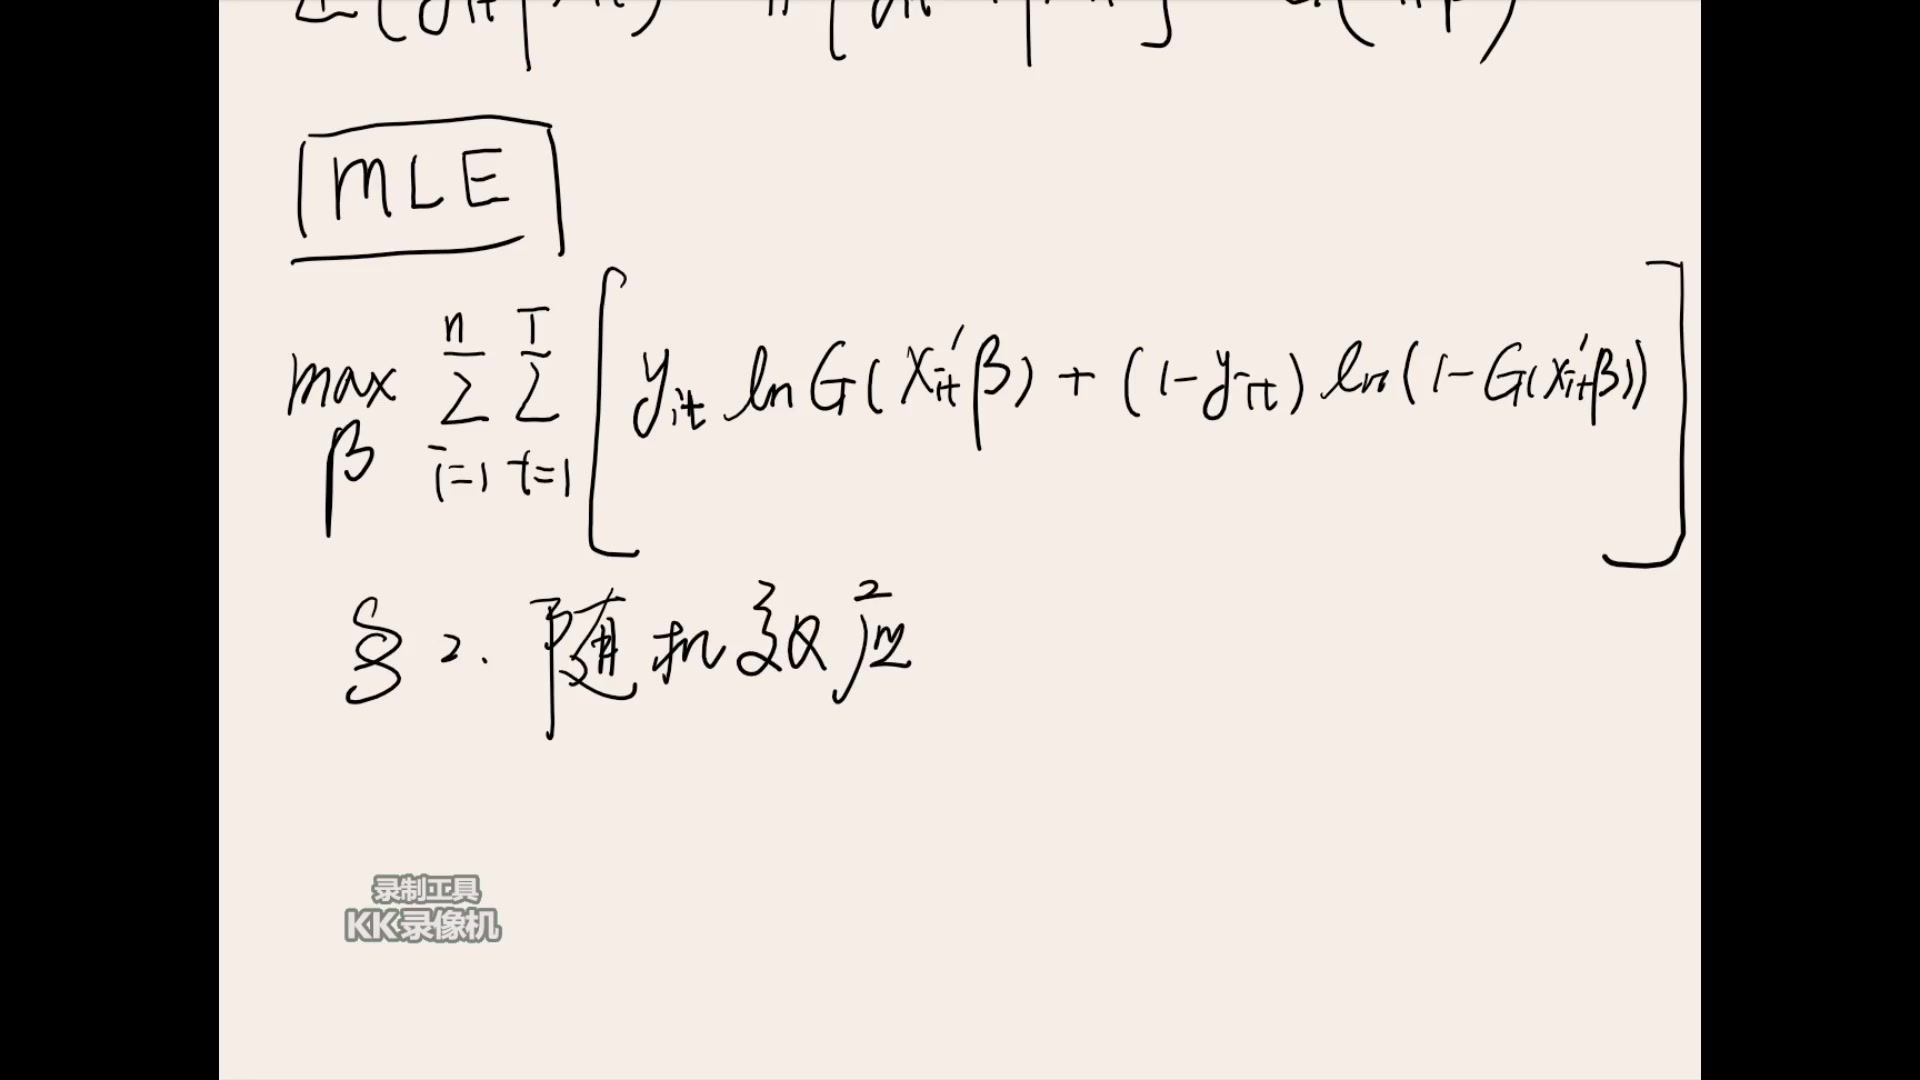 MLE
max β Σ_{i=1}^{n} Σ_{t=1}^{T} [ y_it ln G(x_it'β) + (1-y_it) ln(1-G(x_it'β)) ]
§2. 随机效应
录制工具
KK录像机